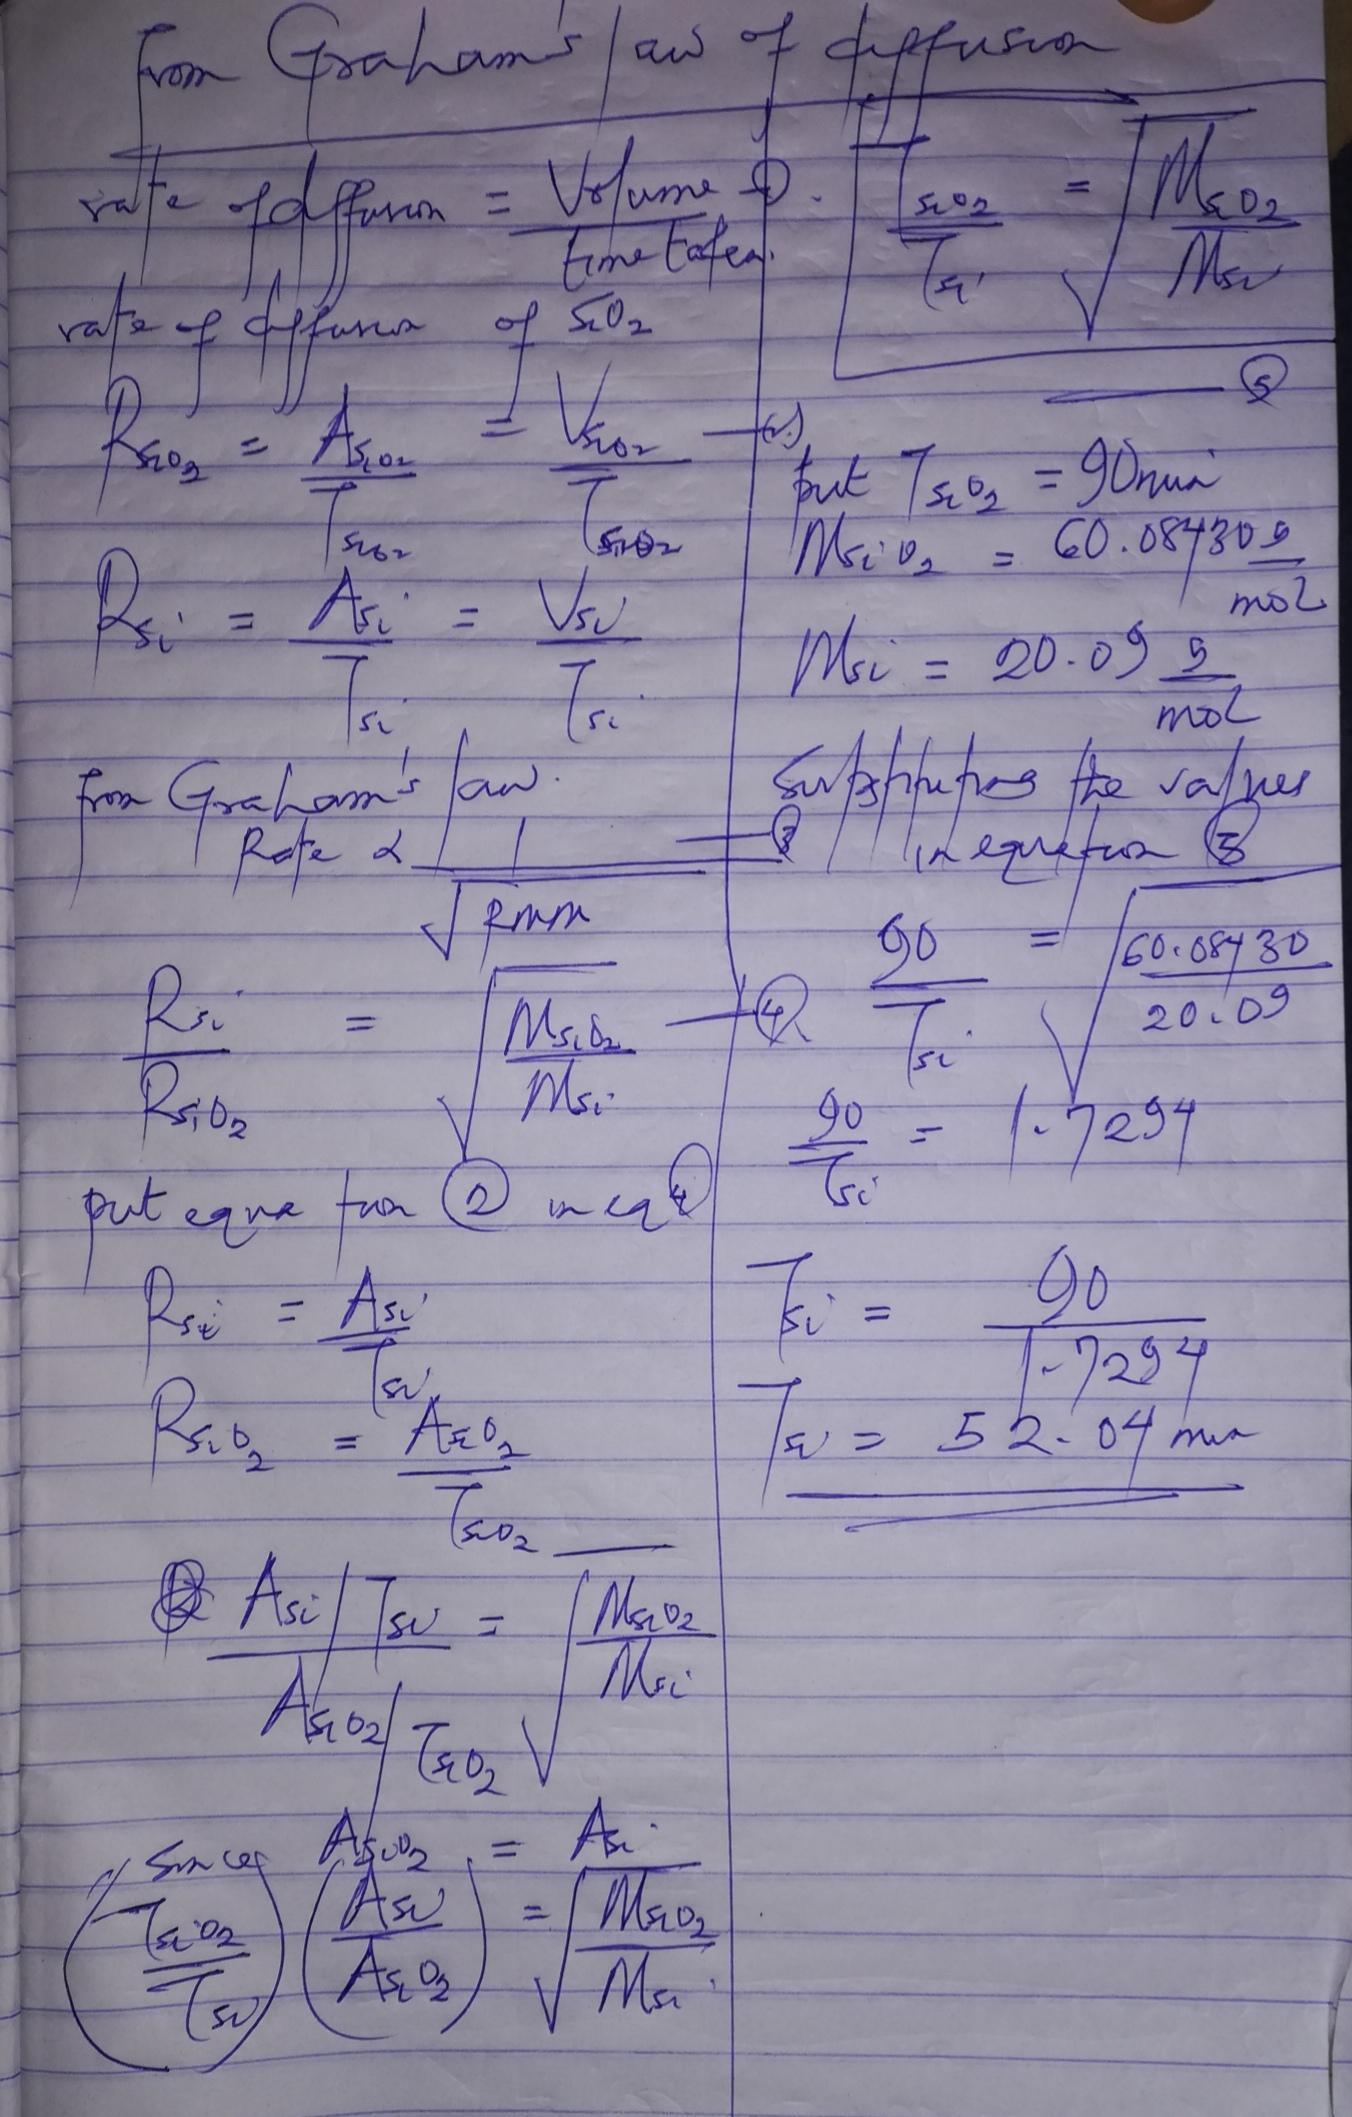 from Graham's law of diffusion
rate of diffusion = Volume / time taken ①.
rate of diffusion of SiO₂
R_SiO₂ = A_SiO₂ / T_SiO₂ = V_SiO₂ / T_SiO₂ — (2)
R_Si = A_Si / T_Si = V_Si / T_Si
from Graham's law.
Rate α 1 / √RMM — ③
R_Si / R_SiO₂ = √(M_SiO₂ / M_Si) — ④
put equation ② in eq ④
R_Si = A_Si / T_Si
R_SiO₂ = A_SiO₂ / T_SiO₂
A_Si / T_Si / A_SiO₂ / T_SiO₂ = √(M_SiO₂ / M_Si)
Since A_SiO₂ = A_Si
(T_SiO₂ / T_Si) (A_Si / A_SiO₂) = √(M_SiO₂ / M_Si)
T_SiO₂ / T_Si = √(M_SiO₂ / M_Si)
— ⑤
put T_SiO₂ = 90min
M_SiO₂ = 60.08430 g/mol
M_Si = 20.09 g/mol
Substituting the values
in equation ⑤
90 / T_Si = √(60.08430 / 20.09)
90 / T_Si = 1.7294
T_Si = 90 / 1.7294
T_Si = 52.04 min